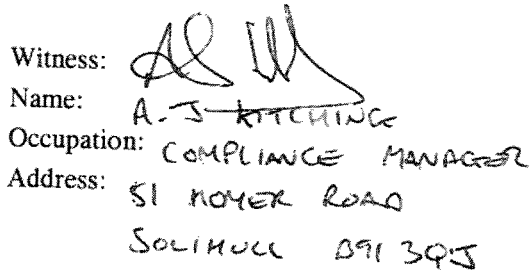 Witness:
Name: A. J KITCHING
Occupation: COMPLIANCE MANAGER
Address: 51 MOYER ROAD
SOLIHULL B91 3QJ